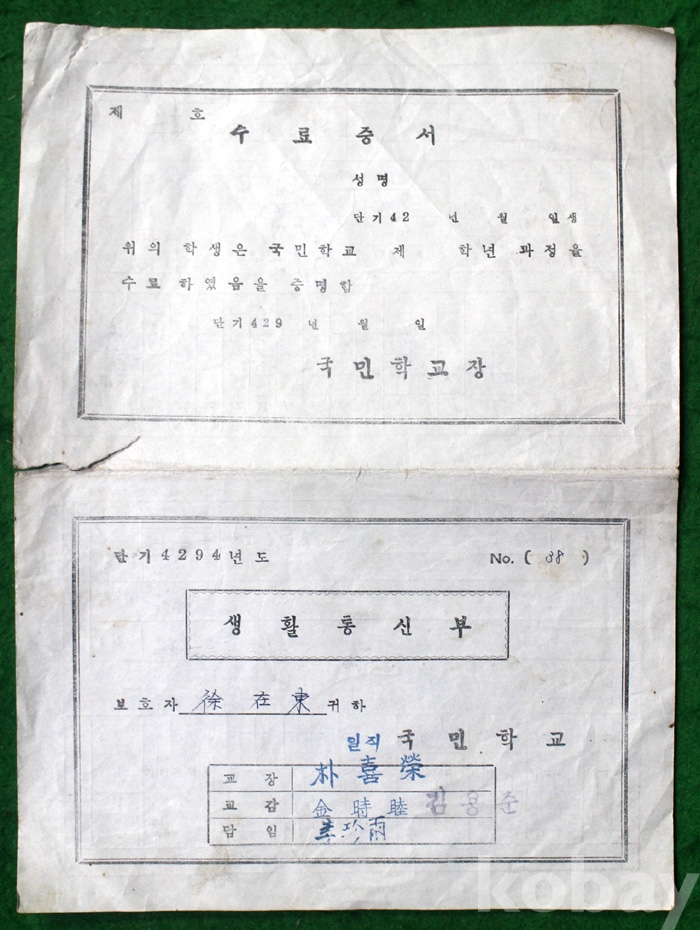 제 호
수료증서
성명
단기42 년 월 일생
위의 학생은 국민학교 제 학년 과정을
수료 하였음을 증명함
단기429 년 월 일
국민학교장
단기4294년도 No. ( 38 )
생활통신부
보호자 徐在東 귀하
일직 국민학교
교장 朴喜榮
교감 金時睦 김용준
담임
kobay